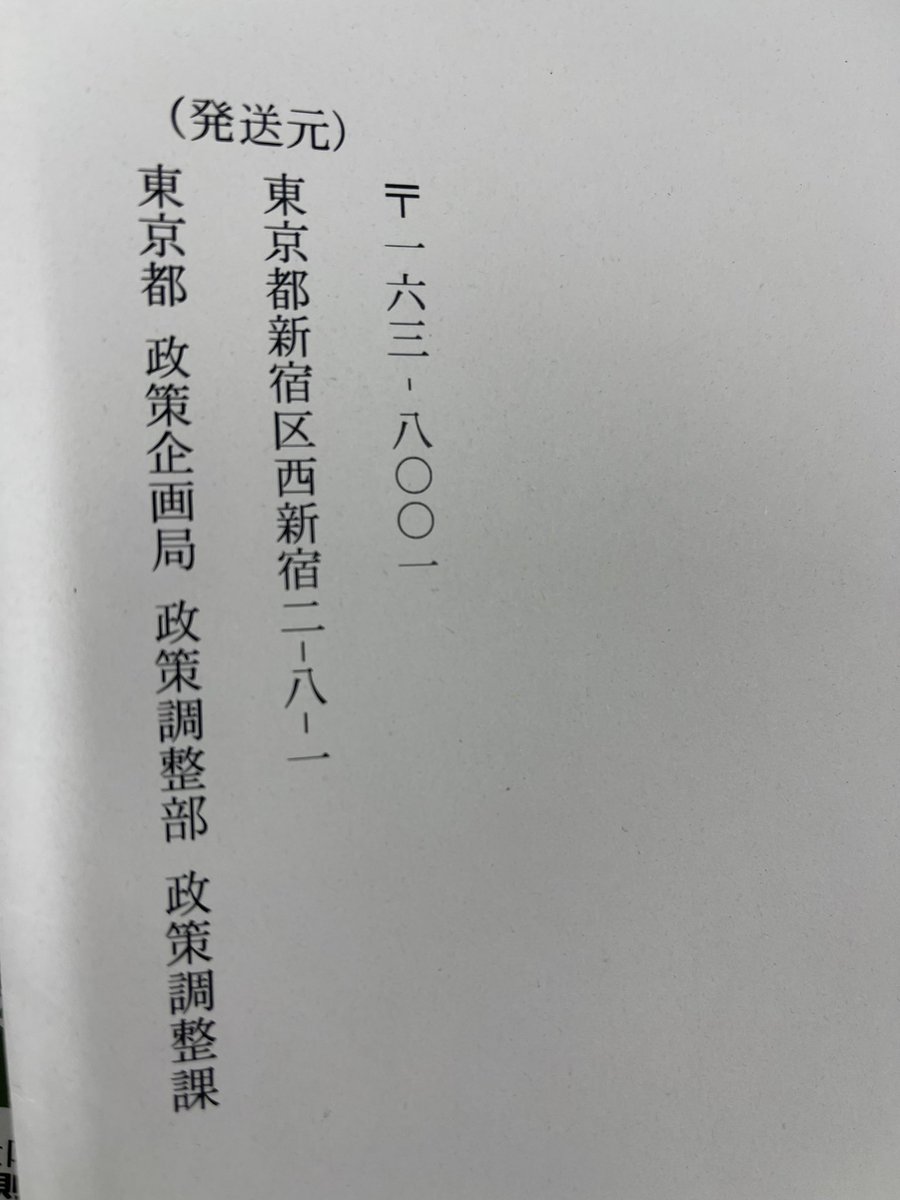 （発送元）
〒一六三-八〇〇一
東京都新宿区西新宿二-八-一
東京都 政策企画局 政策調整部 政策調整課